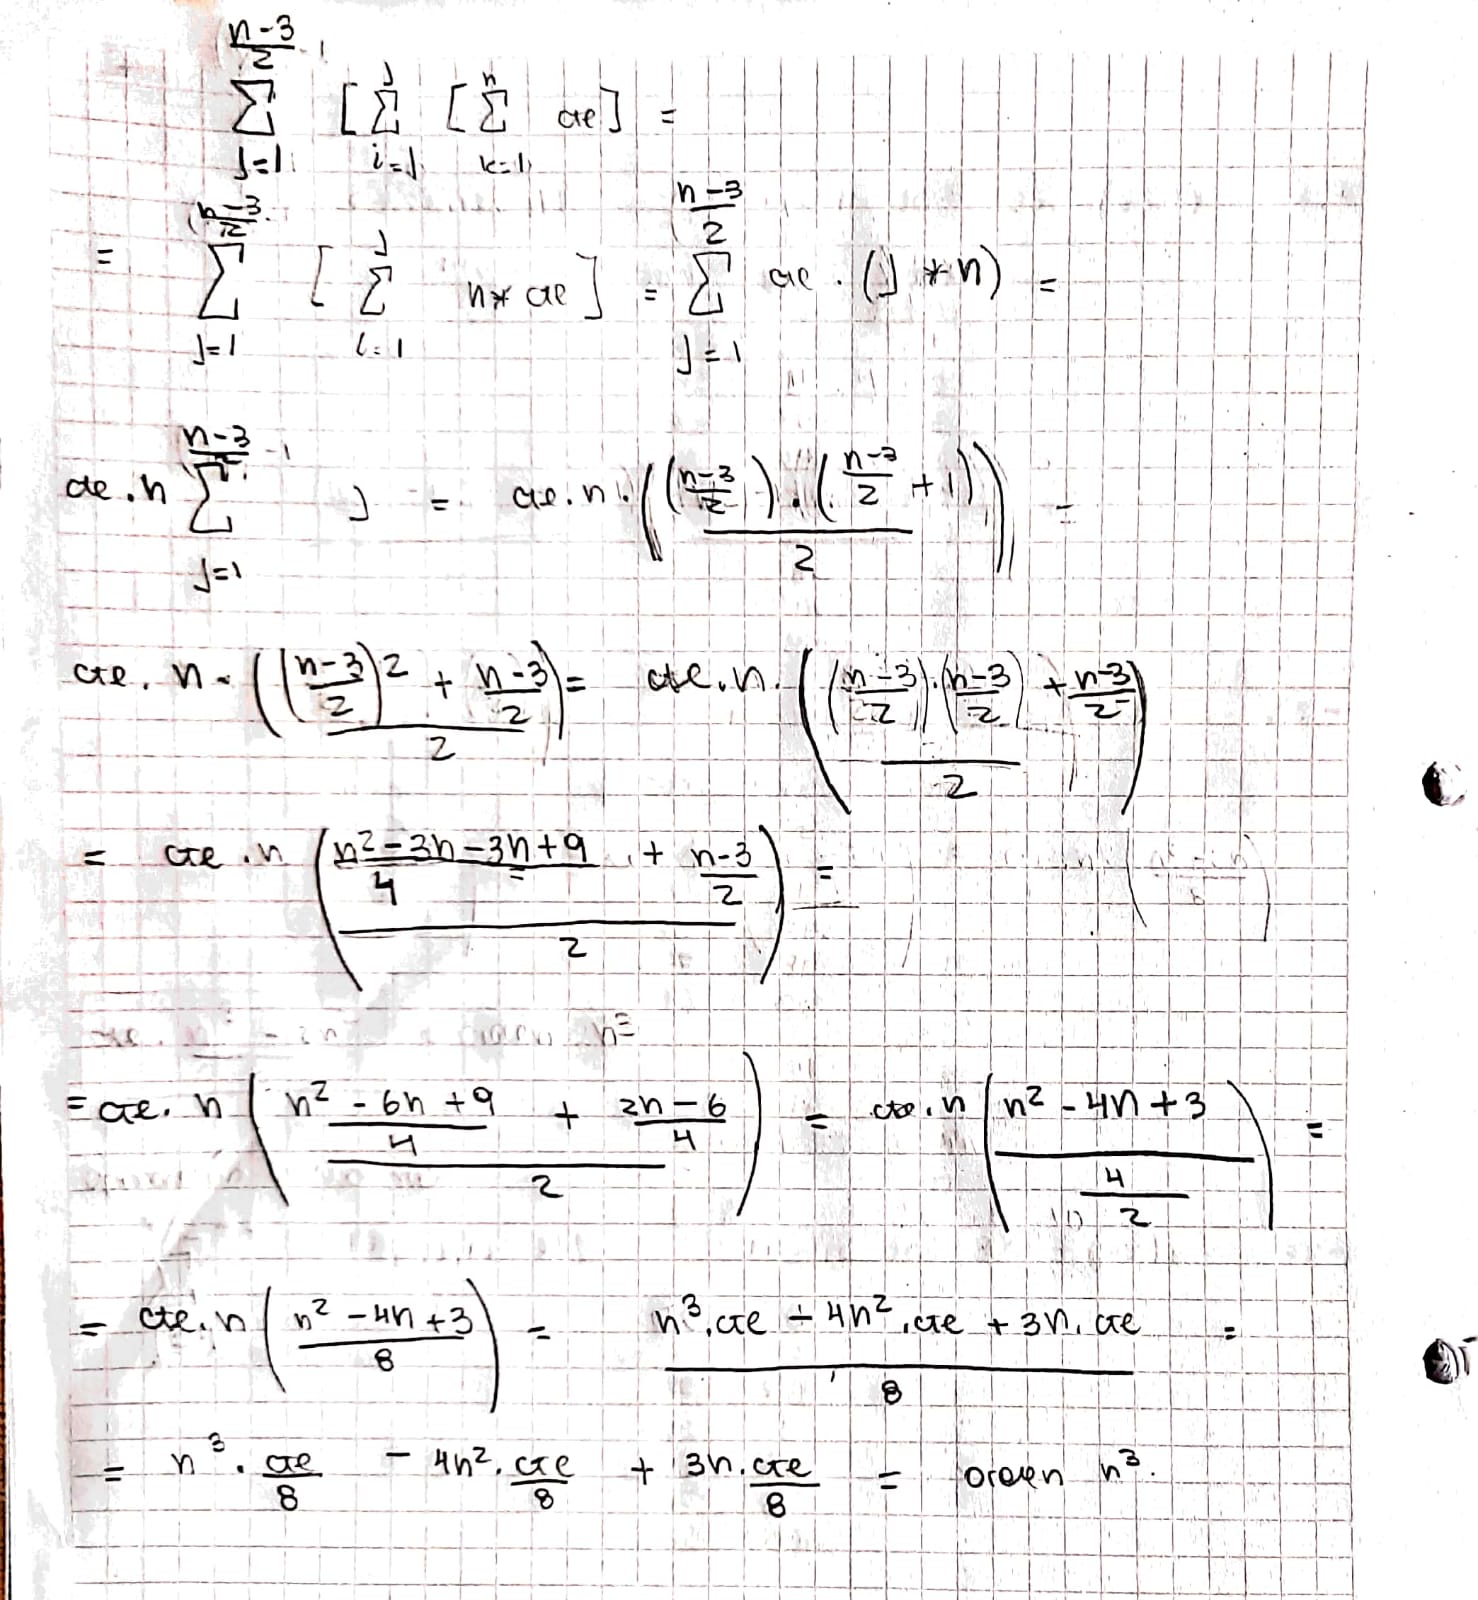 \sum_{j=1}^{\frac{n-3}{2}-1} [ \sum_{i=1}^{j} [ \sum_{k=1}^{n} cte ] =
= \sum_{j=1}^{\frac{n-3}{2}} [ \sum_{i=1}^{j} n * cte ] = \sum_{j=1}^{\frac{n-3}{2}} cte . (j * n) =
cte . n \sum_{j=1}^{\frac{n-3}{2}-1} j = cte . n . ( \frac{(\frac{n-3}{2}) . (\frac{n-3}{2} + 1)}{2} ) =
cte . n . ( \frac{(\frac{n-3}{2})^2 + \frac{n-3}{2}}{2} ) = cte . n . ( \frac{(\frac{n-3}{2}) . (\frac{n-3}{2}) + \frac{n-3}{2}}{2} )
= cte . n ( \frac{\frac{n^2 - 3n - 3n + 9}{4} + \frac{n-3}{2}}{2} ) =
= cte . n ( \frac{\frac{n^2 - 6n + 9}{4} + \frac{2n-6}{4}}{2} ) = cte . n ( \frac{n^2 - 4n + 3}{\frac{4}{2}} ) =
= cte . n ( \frac{n^2 - 4n + 3}{8} ) = \frac{n^3 . cte - 4n^2 . cte + 3n . cte}{8} =
= n^3 . \frac{cte}{8} - 4n^2 . \frac{cte}{8} + 3n . \frac{cte}{8} = orden n^3 .